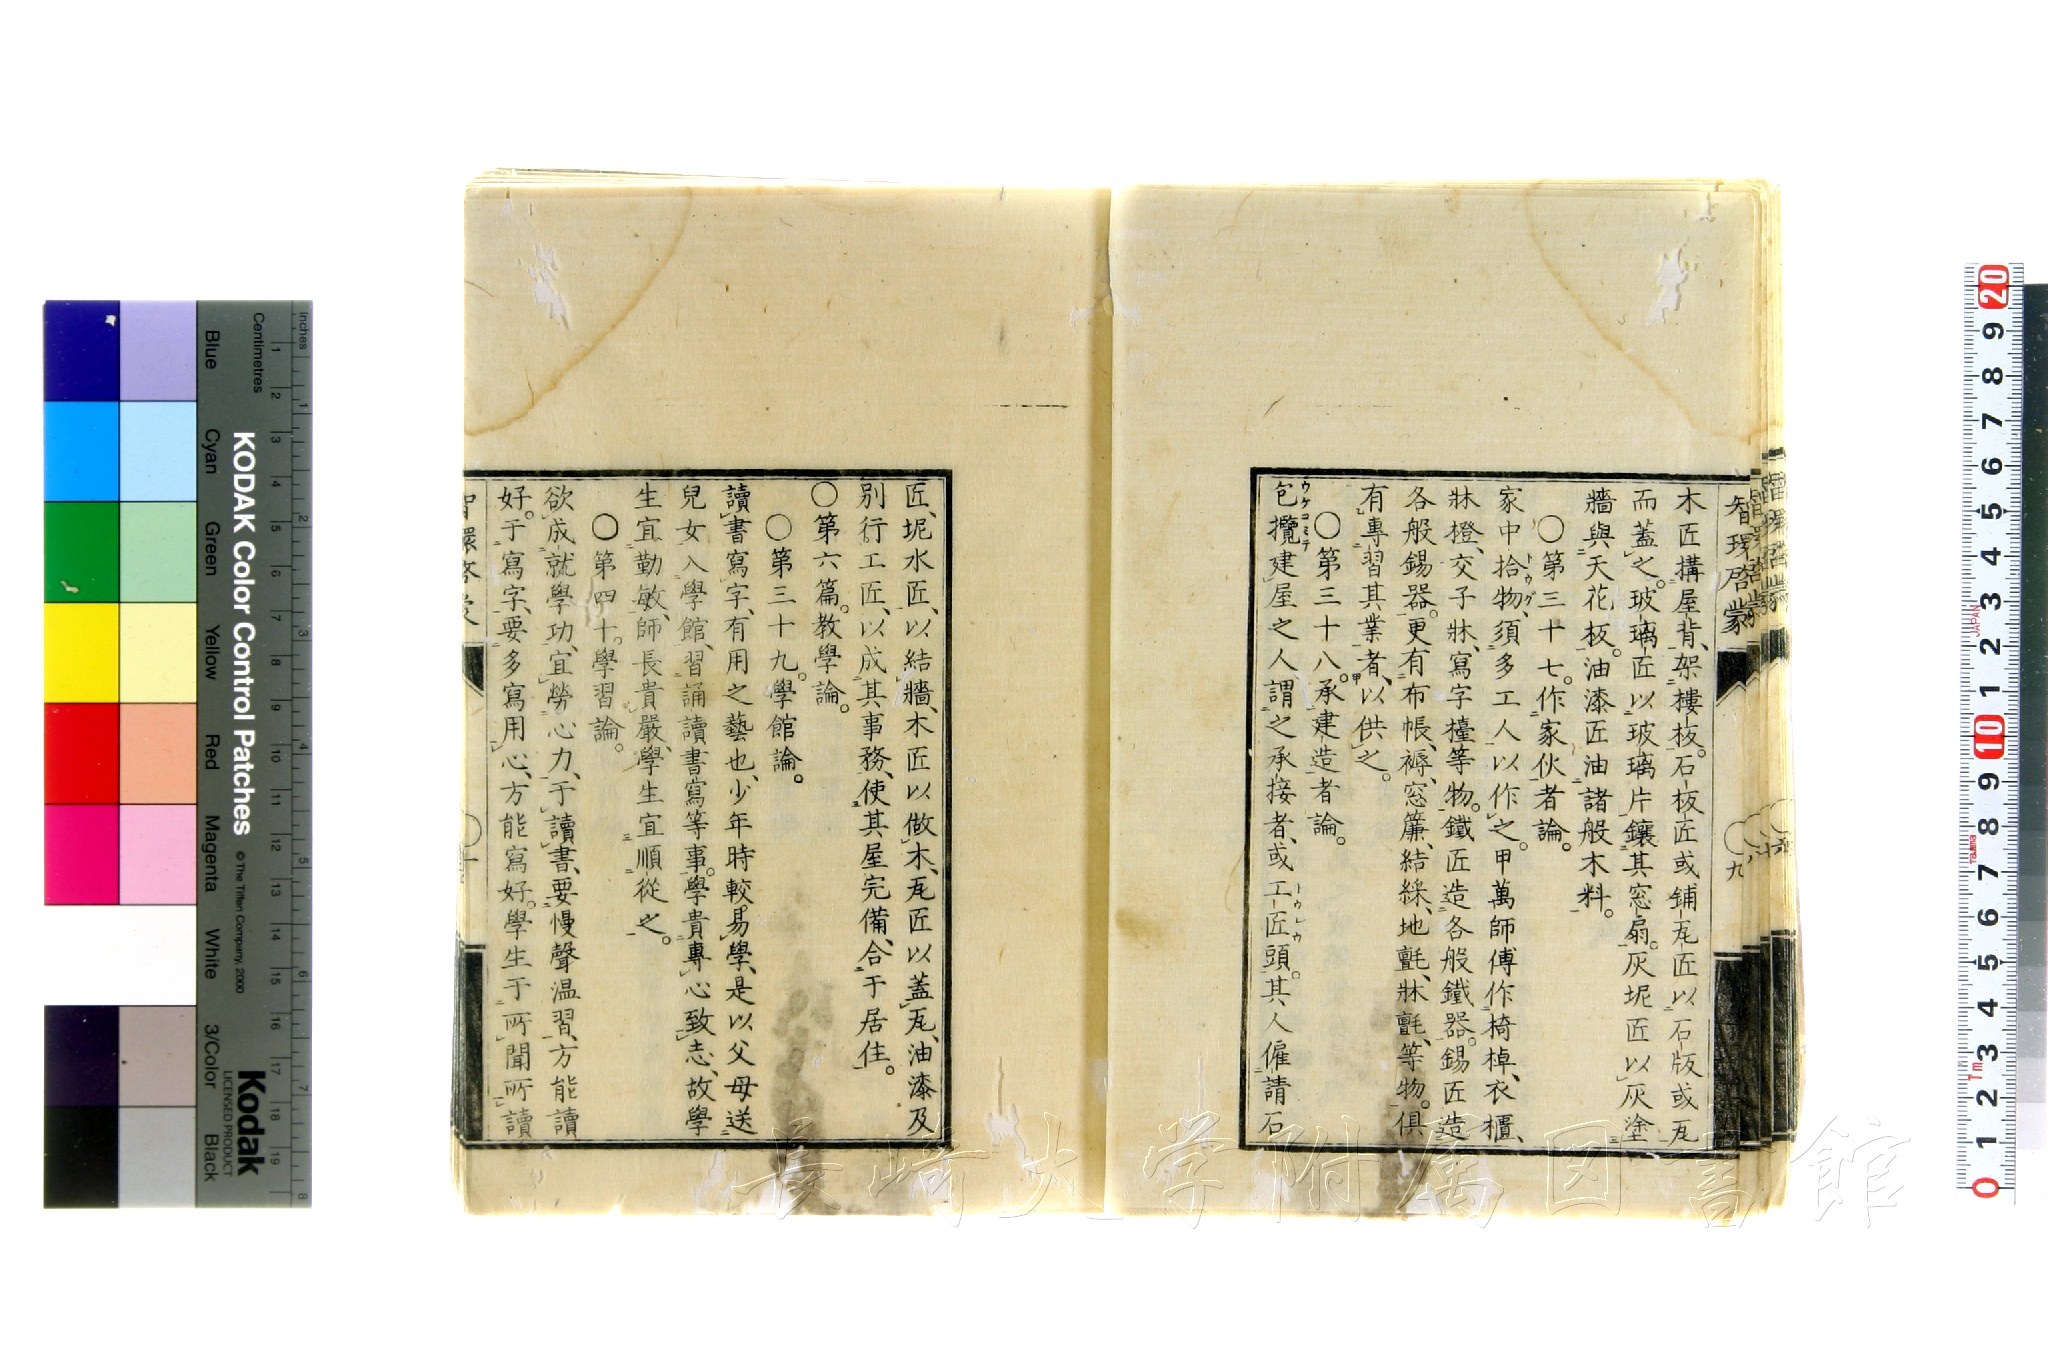 智環启蒙
九
木匠搆屋背、架樓板。石板匠或鋪瓦匠以石版或瓦
而蓋之。玻璃匠以玻璃片鑲其窓扇。灰坭匠以灰塗
牆與天花板。油漆匠油諸般木料。
〇第三十七。作家伙者論。
家中拾物、須多工人以作之。甲萬師傅作椅棹、衣櫃、
牀橙、交子牀、寫字檯等物。鐵匠造各般鐵器。錫匠造
各般錫器。更有布帳、褥、窓簾、結綵、地氈、牀氈、等物。俱
有專習其業者、以供之。
〇第三十八。承建造者論。
包攬建屋之人謂之承接者、或工匠頭。其人僱請石
匠、坭水匠、以結牆、木匠以做木、瓦匠以蓋瓦、油漆及
別行工匠、以成其事務、使其屋完備、合于居住。
〇第六篇。教學論。
〇第三十九。學館論。
讀書寫字、有用之藝也、少年時較易學、是以父母送
兒女入學館、習誦讀書寫等事。學貴專心致志、故學
生宜勤敏、師長貴嚴、學生宜順從之。
〇第四十。學習論。
欲成就學功、宜勞心力、于讀書、要慢聲温習、方能讀
好。于寫字、要多寫用心、方能寫好。學生于所聞所讀
KODAK Color Control Patches
© The Tiffen Company, 2000
Kodak
LICENSED PRODUCT
Inches
Centimetres
Blue
Cyan
Green
Yellow
Red
Magenta
White
3/Color
Black
長崎大学附属図書館